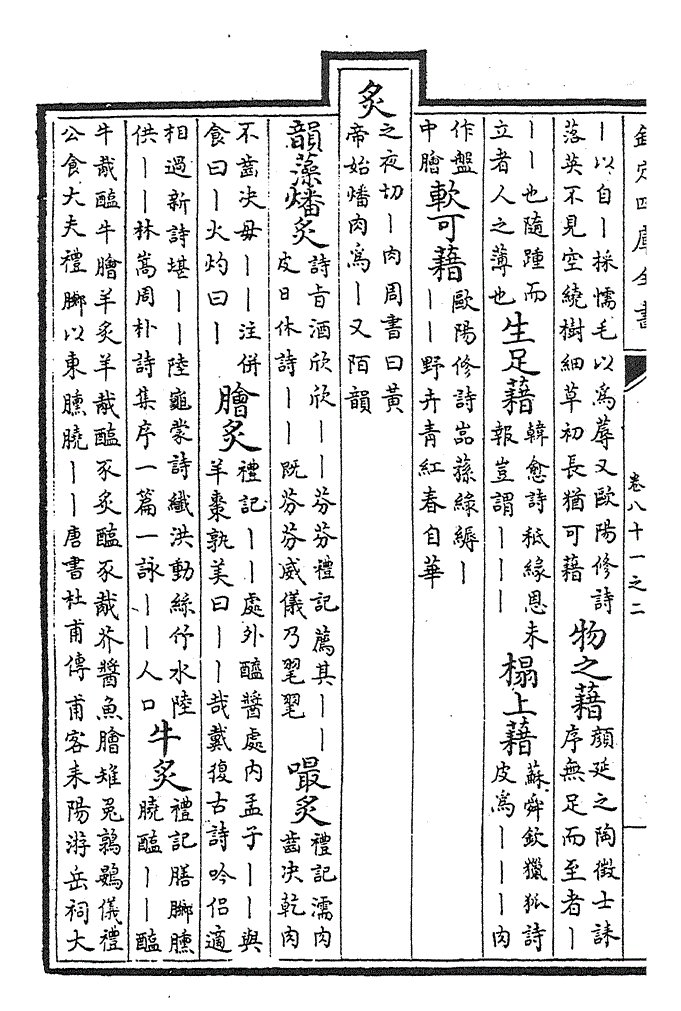 欽定四庫全書
卷八十一之二
丨以自丨採懦毛以為蓐又歐陽修詩
落英不見空繞樹細草初長猶可藉
物之藉
顔延之陶徵士誄
序無足而至者丨
丨丨也隨踵而
立者人之薄也
生足藉
韓愈詩秪緣恩未
報豈謂丨丨丨
榻上藉
蘇舜欽獵狐詩
皮為丨丨丨肉
作盤
中膾
軟可藉
歐陽修詩嵓蓀綠縟丨
丨丨野卉青紅春自華
炙
之夜切丨肉周書曰黃
帝始燔肉為丨又陌韻
韻藻燔炙
詩㫖酒欣欣丨丨芬芬禮記薦其丨丨
皮日休詩丨丨既芬芬威儀乃毣毣
嘬炙
禮記濡肉
齒决乾肉
不齒决毋丨丨注併
食曰丨火灼曰丨
膾炙
禮記丨丨處外醯醬處内孟子丨丨與
羊棗孰美曰丨丨哉戴復古詩吟侶適
相過新詩堪丨丨陸龜蒙詩纖洪動絲佇水陸
供丨丨林嵩周朴詩集序一篇一詠丨丨人口
牛炙
禮記膳膷臐
膮醢丨丨醢
牛胾醢牛膾羊炙羊胾醢豕炙醢豕胾芥醬魚膾雉兔鶉鷃儀禮
公食大夫禮膷以東臐膮丨丨唐書杜甫傳甫客耒陽游岳祠大